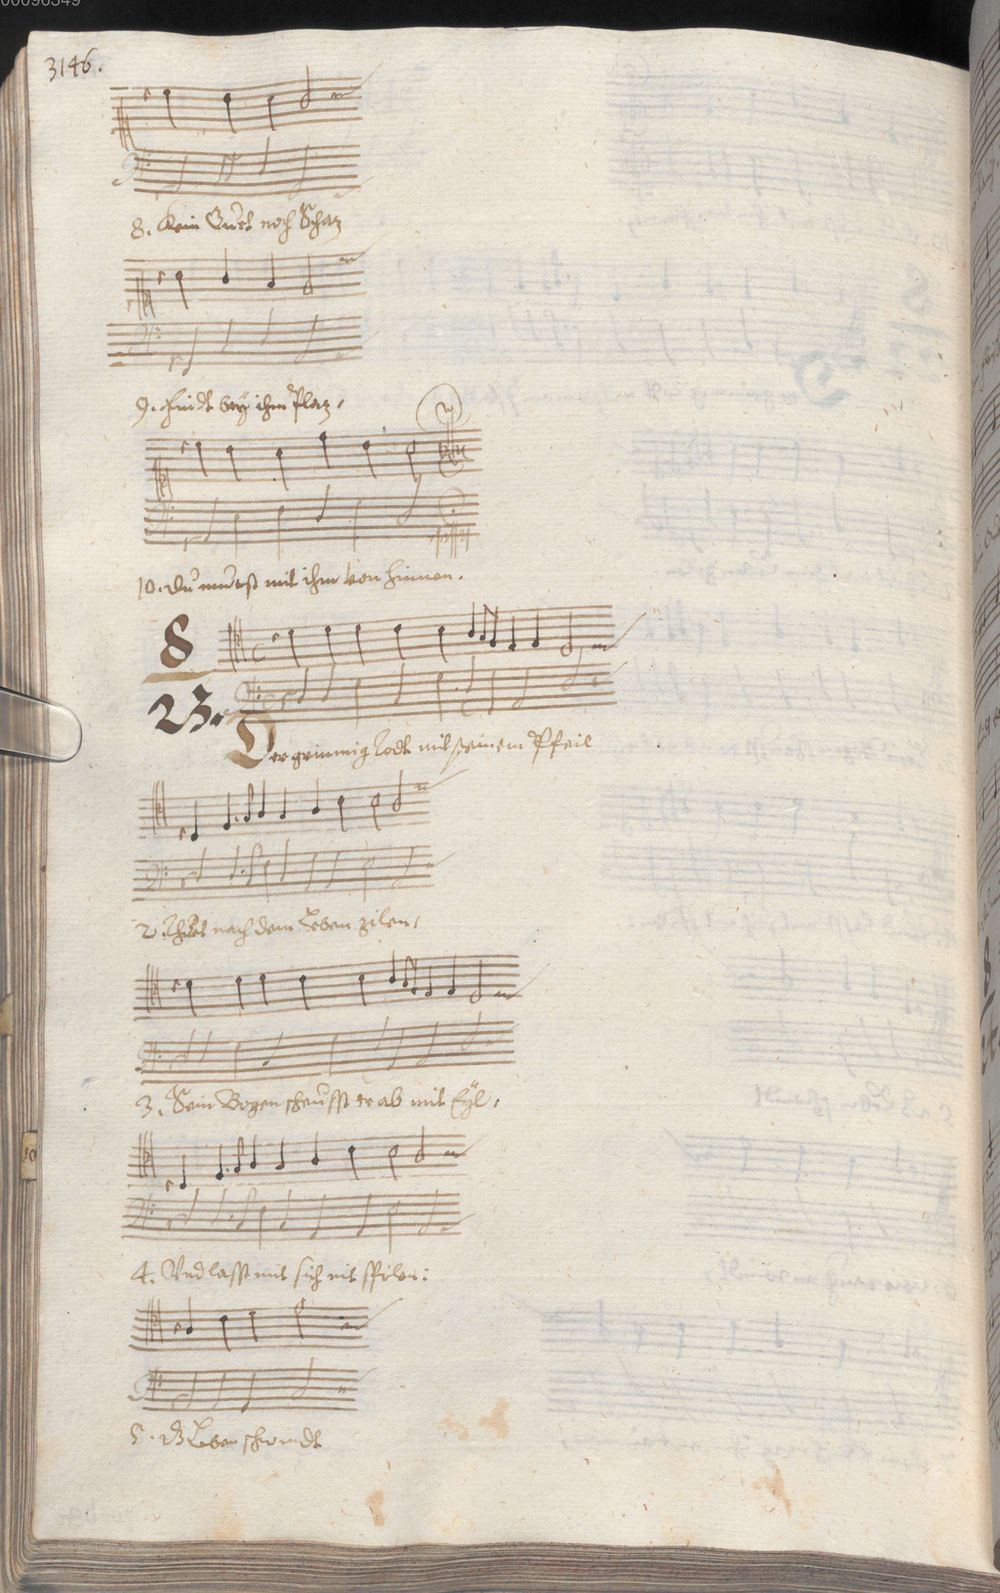 00096349
3146.
8. Kein Guet noch Schaz
9. Findt bey ihm Plaz,
10. Du muest mit ihm von hinnen.
8
23.
Der grimmig Todt mit seinem Pfeil
2. Thuet nach dem Leben zilen,
3. Sein Bogen scheusst er ab mit Eyl,
4. Und lasst mit sich nit spilen:
5. Dz Leben schwindt